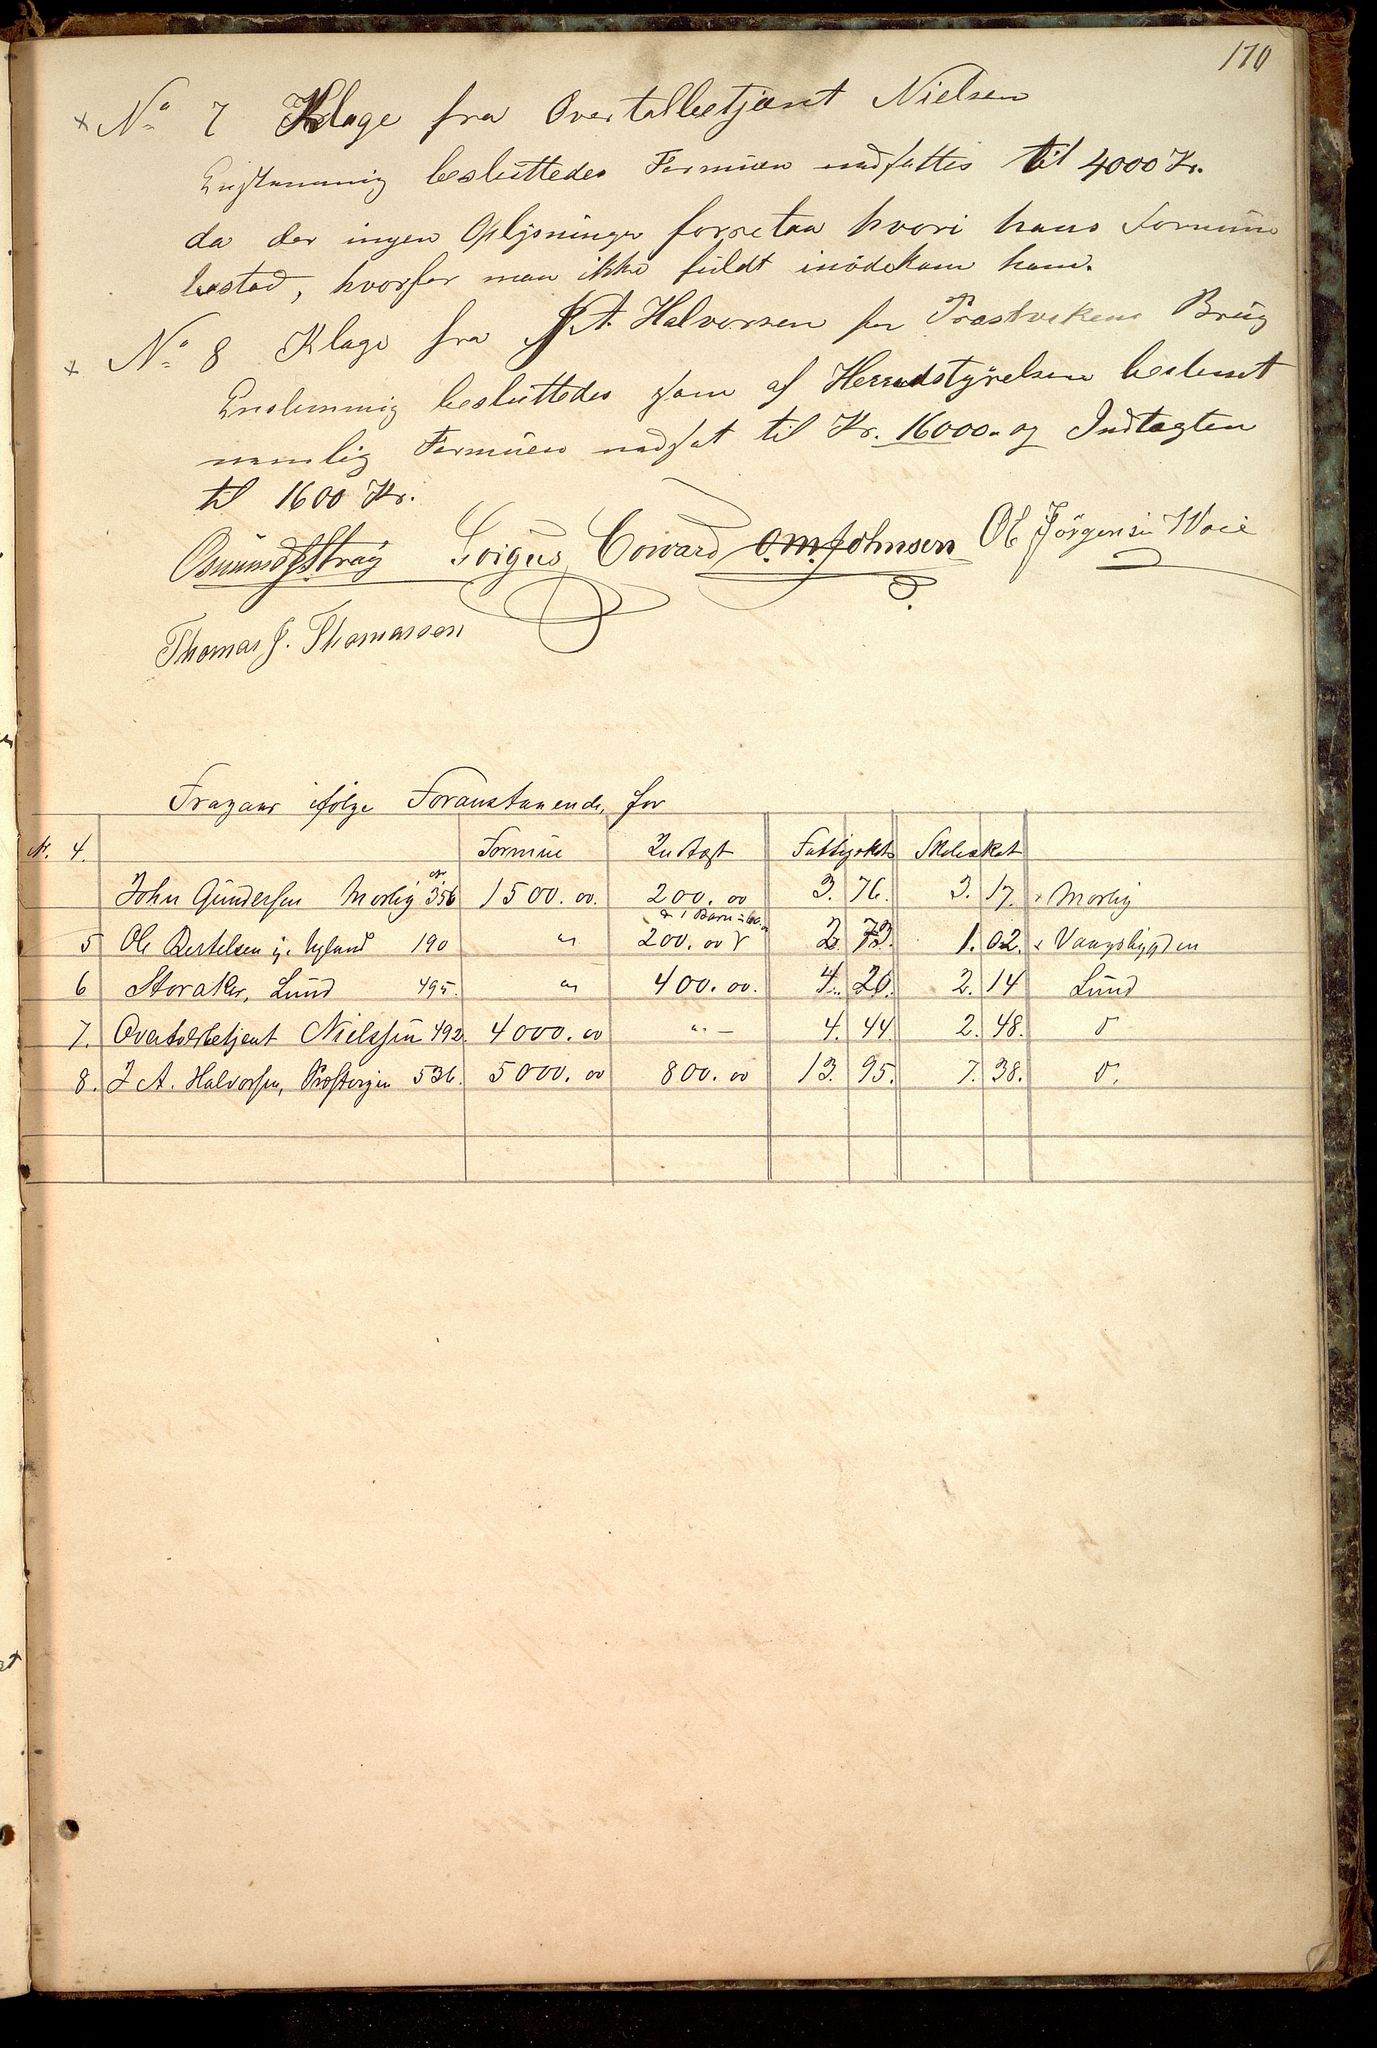 170
× No 7 Klage fra Overtolbetjent Nielsen
Enstemmig besluttedes Formuen nedsattes til 4000 Kr.
da der ingen Oplysninger forelaa hvori hans Formue
bestod, hvorfor man ikke fuldt imødekom ham.
× No 8 Klage fra J. A. Halvorsen for Præstvikens Brug
Enstemmig besluttedes som af Herredstyrelsen bestemt
nemlig Formuen nedsat til Kr. 16000.- og Indtægten
til 1600 Kr.
Osmund J Stray Loigus Coward O. M. Johnsen Ole Jörgensen Woie
Thomas J. Thomassen
Fragaar ifølge Foranstaaende, for
Nr. 4. Formue Indtægt Fattigskat Skoleskat
John Gundersen Moslig nr 356 1500.00. 200.00 3. 76. 3. 17. Moslig
& 1 Barn
5 Ole Bertelsen y. Ugland 190 " 200.00 2. 73. 1. 02. Vaagsbygden
6 Storaker, Lund 495. " 400.00. 4. 20. 2. 14 Lund
7. Overtolbetjent Nielssen 492. 4000.00 " - 4. 44. 2. 48. d
8. J A. Halvorsen, Præstvigen 536. 5000.00 800.00 13. 95. 7. 38. d.